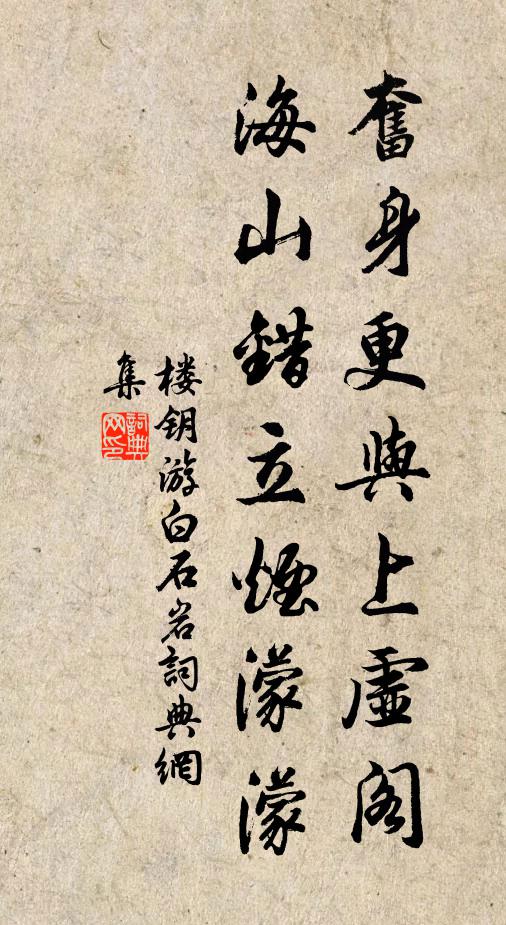 奮身更與上虛閣
海山錯立煙濛濛
楼钥游白石岩詞典網
集
詞典網印